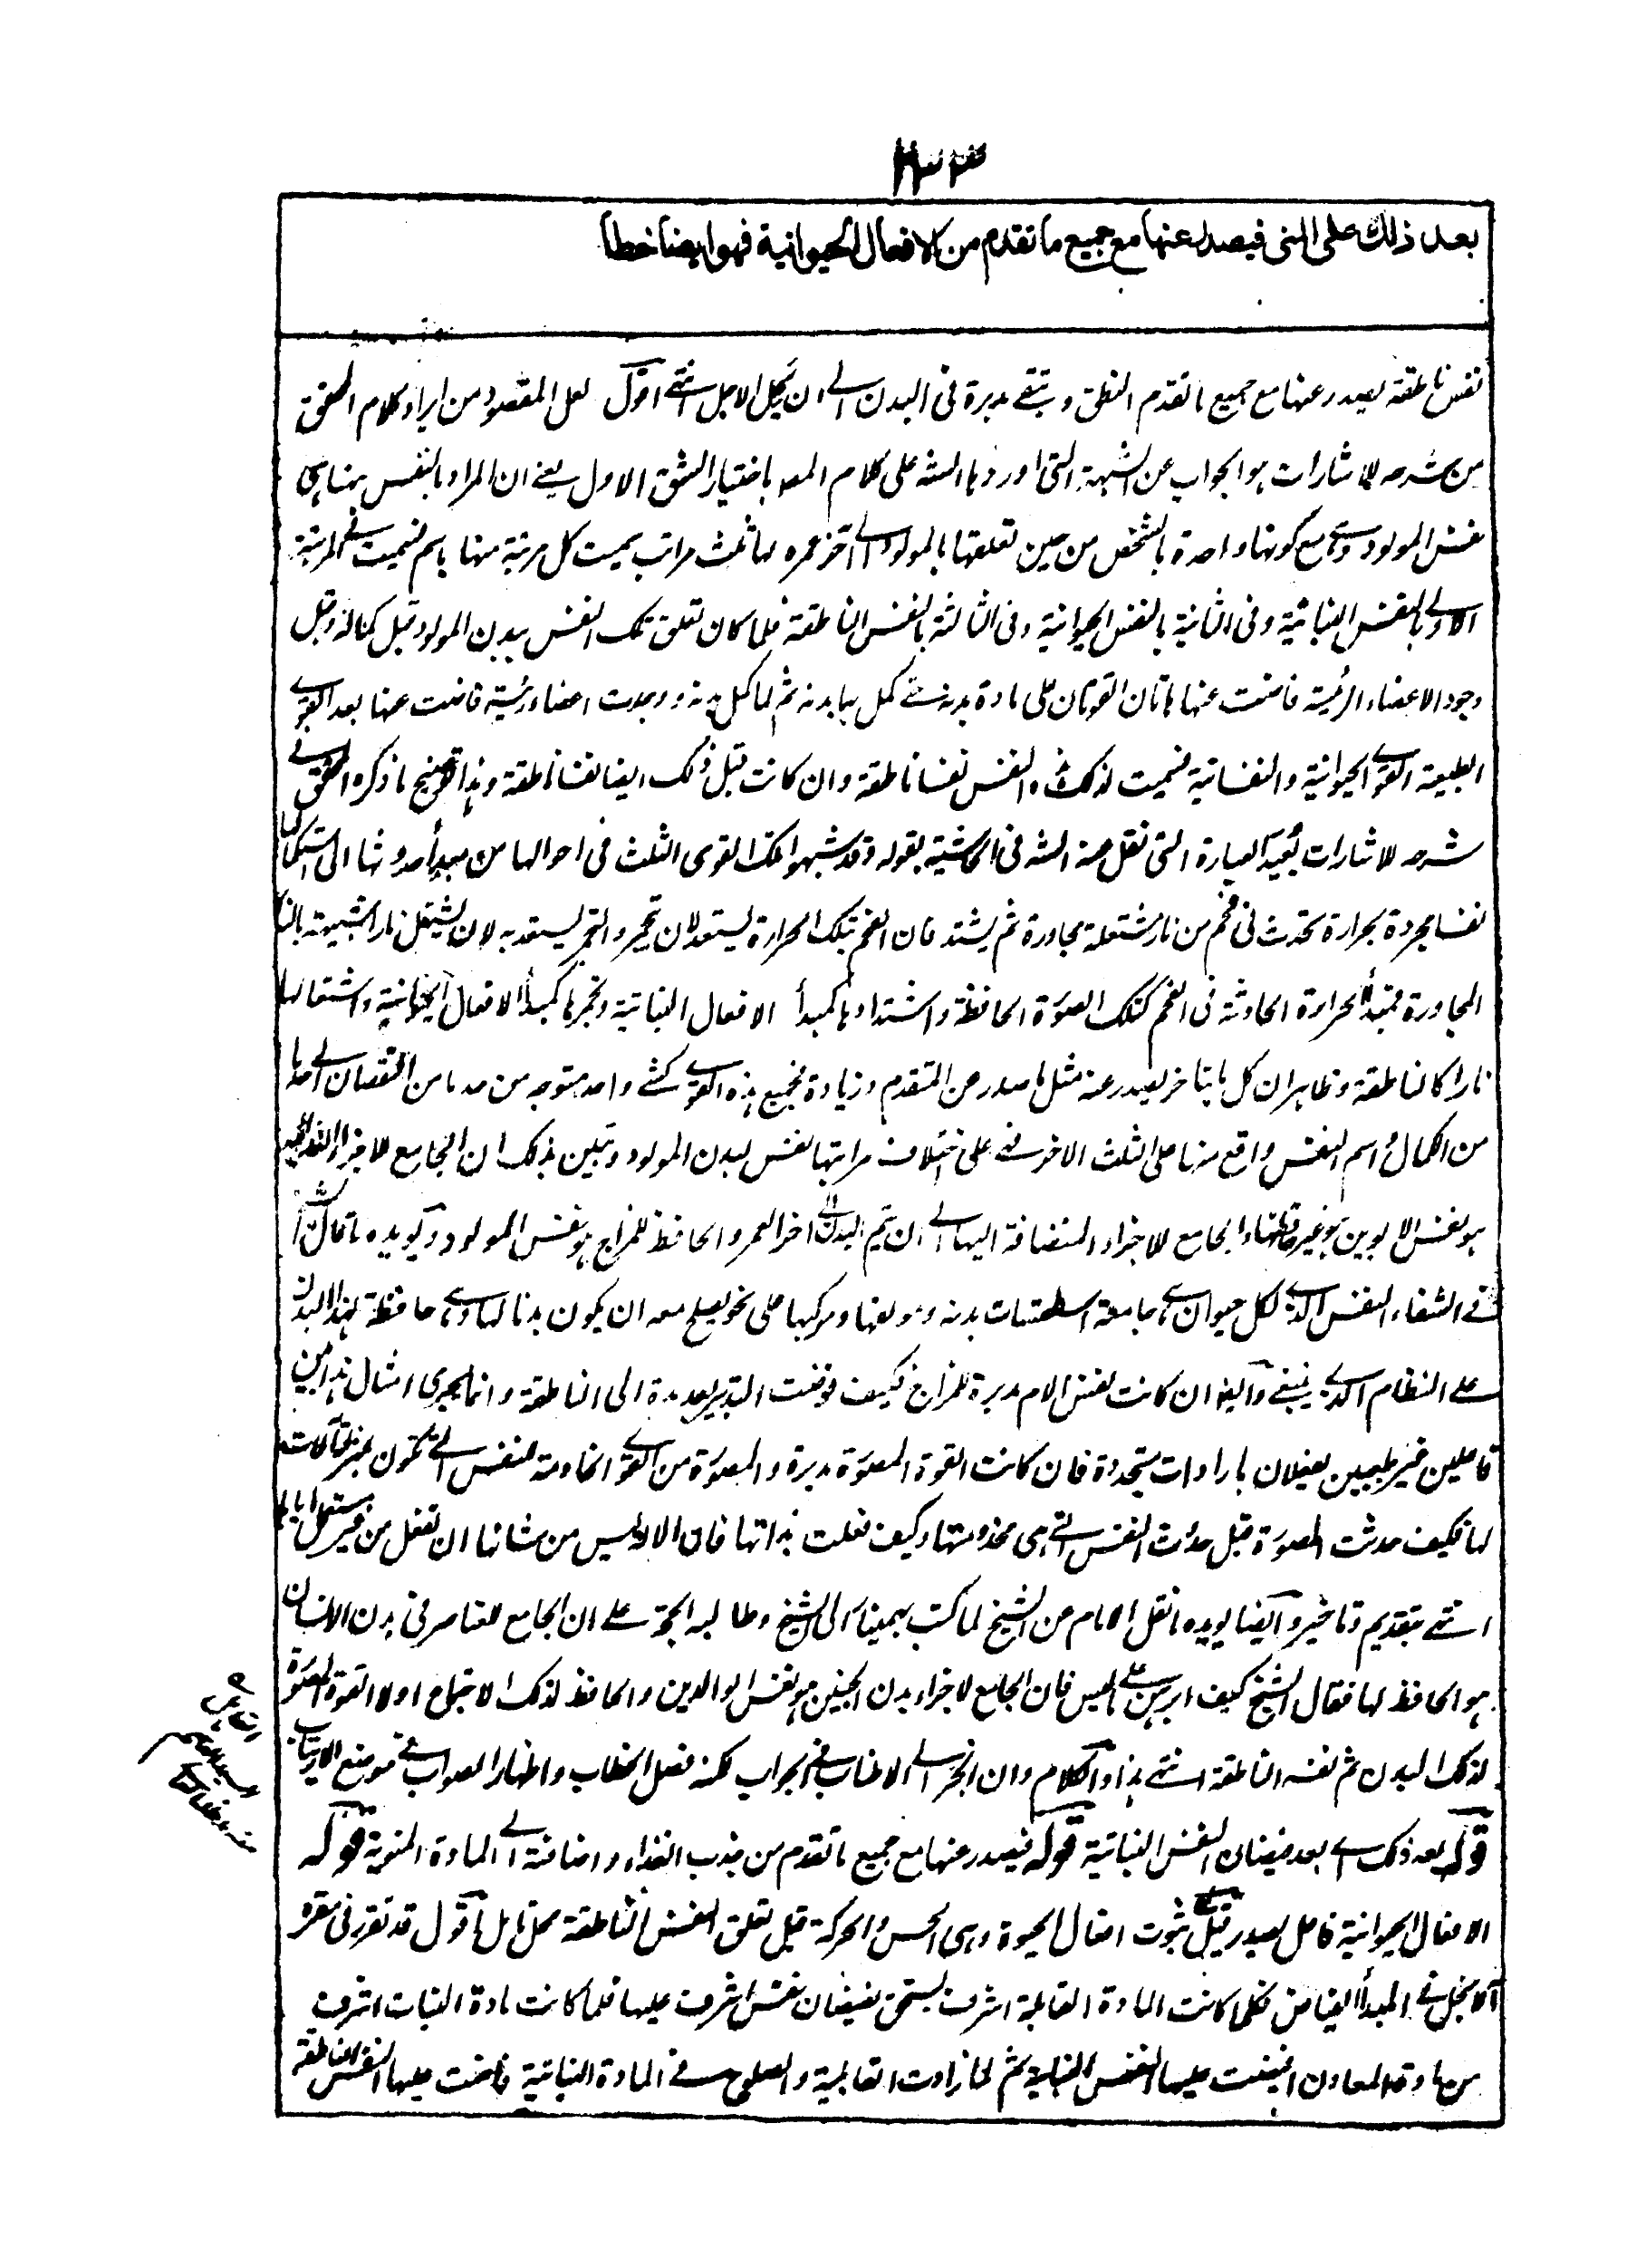 ٢٣٣
بعد ذلك على المنى فيصدر عنها مع جميع ما تقدم من الافعال الحيوانية فهو ايضا خطأ
نفس ناطقة يصدر عنها مع جميع ما تقدم النطق و تبقى مدبرة فى البدن الى ان يحل الاجل انتهى اقول لعل المقصود من ايراد كلام المحقق
من شرحه للاشارات هو الجواب عن الشبهة التى اوردها الشه على كلام المصه باختيار الشق الاول يعنى ان المراد بالنفس ههنا هى
نفس المولود وهى مع كونها واحدة بالشخص من حين تعلقها بالمولود الى آخر عمره لها ثلث مراتب سميت كل مرتبة منها باسم فسميت فى المرتبة
الاولى بالنفس النباتية وفى الثانية بالنفس الحيوانية وفى الثالثة بالنفس الناطقة فلما كان تعلق تلك النفس ببدن المولود قبل كماله وقبل
وجود الاعضاء الرئيسة فاضت عنها هاتان القوتان على مادة بدنه حتى كمل بها بدنه ثم لما كمل بدنه ووجدت اعضاء رئيسة فاضت عنها بعد القوى
الطبيعة القوى الحيوانية والنفسانية فسميت لذلك هذه النفس نفسا ناطقة وان كانت قبل ذلك ايضا نفسا ناطقة وهذا توضيح ما ذكره المحقق فى
شرحه للاشارات بُعيد العبارة التى نقل عنه الشه فى الحاشية بقوله وقد شبهوا تلك القوى الثلث فى احوالها من مبدأ حدوثها الى استكمالها
نفسا مجردة بحرارة تحدث فى فحم من نار مشتعلة مجاورة ثم يشتد فان الفحم بتلك الحرارة يستعد لان يتجمر والتجمر يستعد به لان يشتعل نارا شبيهة بالنار
المجاورة فمبدأ الحرارة الحادثة فى الفحم كتلك الصورة الحافظة واشتدادها كمبدأ الافعال النباتية وتجمرها كمبدأ الافعال الحيوانية واشتعالها
نارا كالناطقة وظاهر ان كل ما يتاخر يصدر عنه مثل ما صدر عن المتقدم وزيادة فجميع هذه القوى كشئ واحد متوجه من حد ما من النقصان الى حد ما
من الكمال واسم النفس واقع منها على الثلث الاخر فهى على اختلاف مراتبها نفس لبدن المولود وتبين بذلك ان الجامع للاجزاء الغذائية
هو نفس الابوين وهو غير حافظها والجامع للاجزاء المنضافة اليها الى ان يتم البدن الى اخر العمر والحافظ للمزاج هو نفس المولود ويؤيده ما قال الشيخ
فى الشفاء النفس الذى لكل حيوان هى جامعة اسطقسات بدنه ومولفها ومركبها على نحو يصلح معه ان يكون بدنا لها وهى حافظة لهذا البدن
على النظام الذى ينبغى وايضا ان كانت نفس الام مدبرة للمزاج فكيف فوضت التدبير بعد مدة الى الناطقة وانما يجرى امثال هذا من بين
فاعلين غير طبيعيين يفعلان بارادات متجددة فان كانت القوة المصورة مدبرة والمصورة من القوى الخادمة للنفس التى تكون بمنزلة الآلات
لها فكيف حدثت المصورة قبل حدوث النفس التى هى مخدومتها وكيف فعلت بذاتها فان الآلة ليس من شانها ان تفعل من غير مستعمل اياها
انتهى بتقديم وتاخير وايضا يويده ما نقل الامام عن الشيخ لما كتب بهمنيار الى الشيخ وطالبه الحجة على ان الجامع للعناصر فى بدن الانسان
هو الحافظ لها فقال الشيخ كيف ابرهن على ما ليس فان الجامع لاجزاء بدن الجنين هو نفس الوالدين والحافظ لذلك الاجتماع اولا القوة المصورة
لذلك البدن ثم نفسه الناطقة انتهى هذا والكلام وان انجر الى الاطناب فى الجواب لكنه فصل الخطاب واظهار الصواب فى موضع الارتياب
قوله بعد ذلك اى بعد فيضان النفس النباتية قوله فيصدر عنها مع جميع ما تقدم من جذب الغذاء واضافته الى المادة المنوية قوله
الافعال الحيوانية فاعل يصدر قيل ثبوت افعال الحيوة وهى الحس والحركة قبل تعلق النفس الناطقة محل تامل اقول قد تقرر فى مقره
الا بخل فى المبدأ الفياض فكلما كانت المادة القابلة اشرف يستحق بفيضان نفس اشرف عليها فلما كانت مادة النبات اشرف
من مادة المعادن افيضت عليها النفس النباتية ثم لما زادت القابلية والصلوح فى المادة النباتية فاضت عليها النفس الناطقة